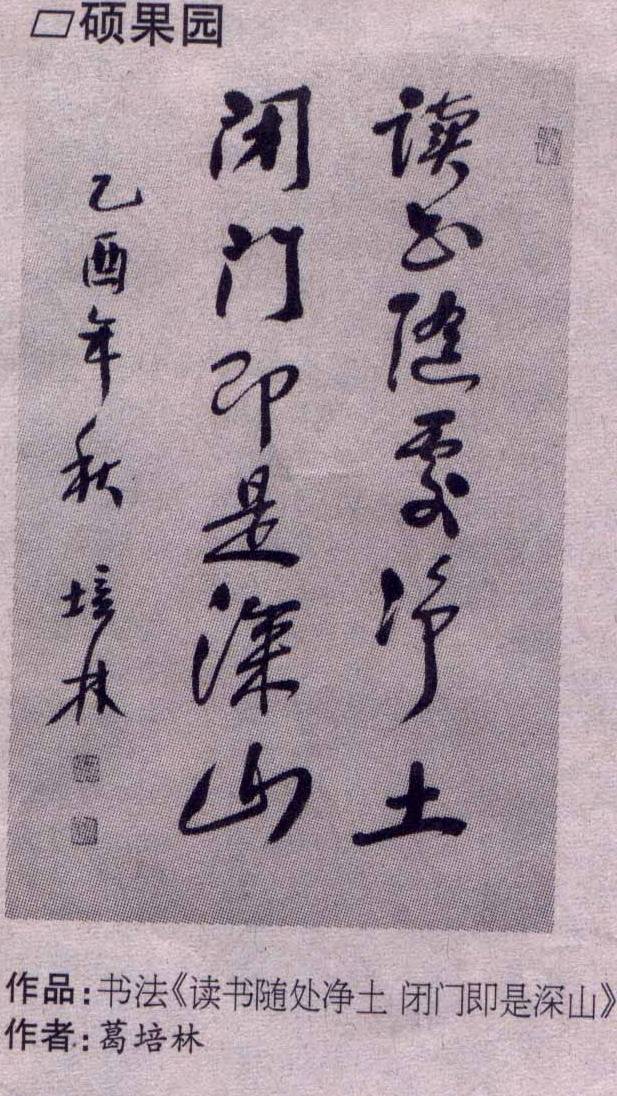 硕果园
读书随处净土
闭门即是深山
乙酉年秋 培林
作品:书法《读书随处净土 闭门即是深山》
作者:葛培林